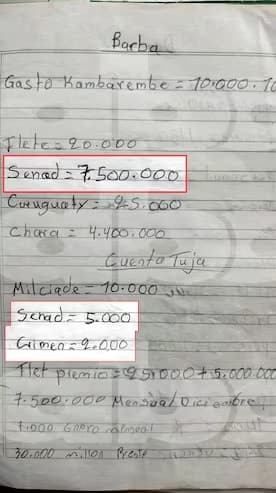 Barba
Gasto Kambarembe = 10.000.10
Flete = 20.000
Senad = 7.500.000
Curuguaty = 25.000
Chara = 4.400.000
Cuenta Tuja
Milciade = 10.000
Senad = 5.000
Crimen = 2.000
Flet premio = 25.000 + 5.000.000
7.500.000 Mensual Diciembre
7.000 Enero
30.000 millon